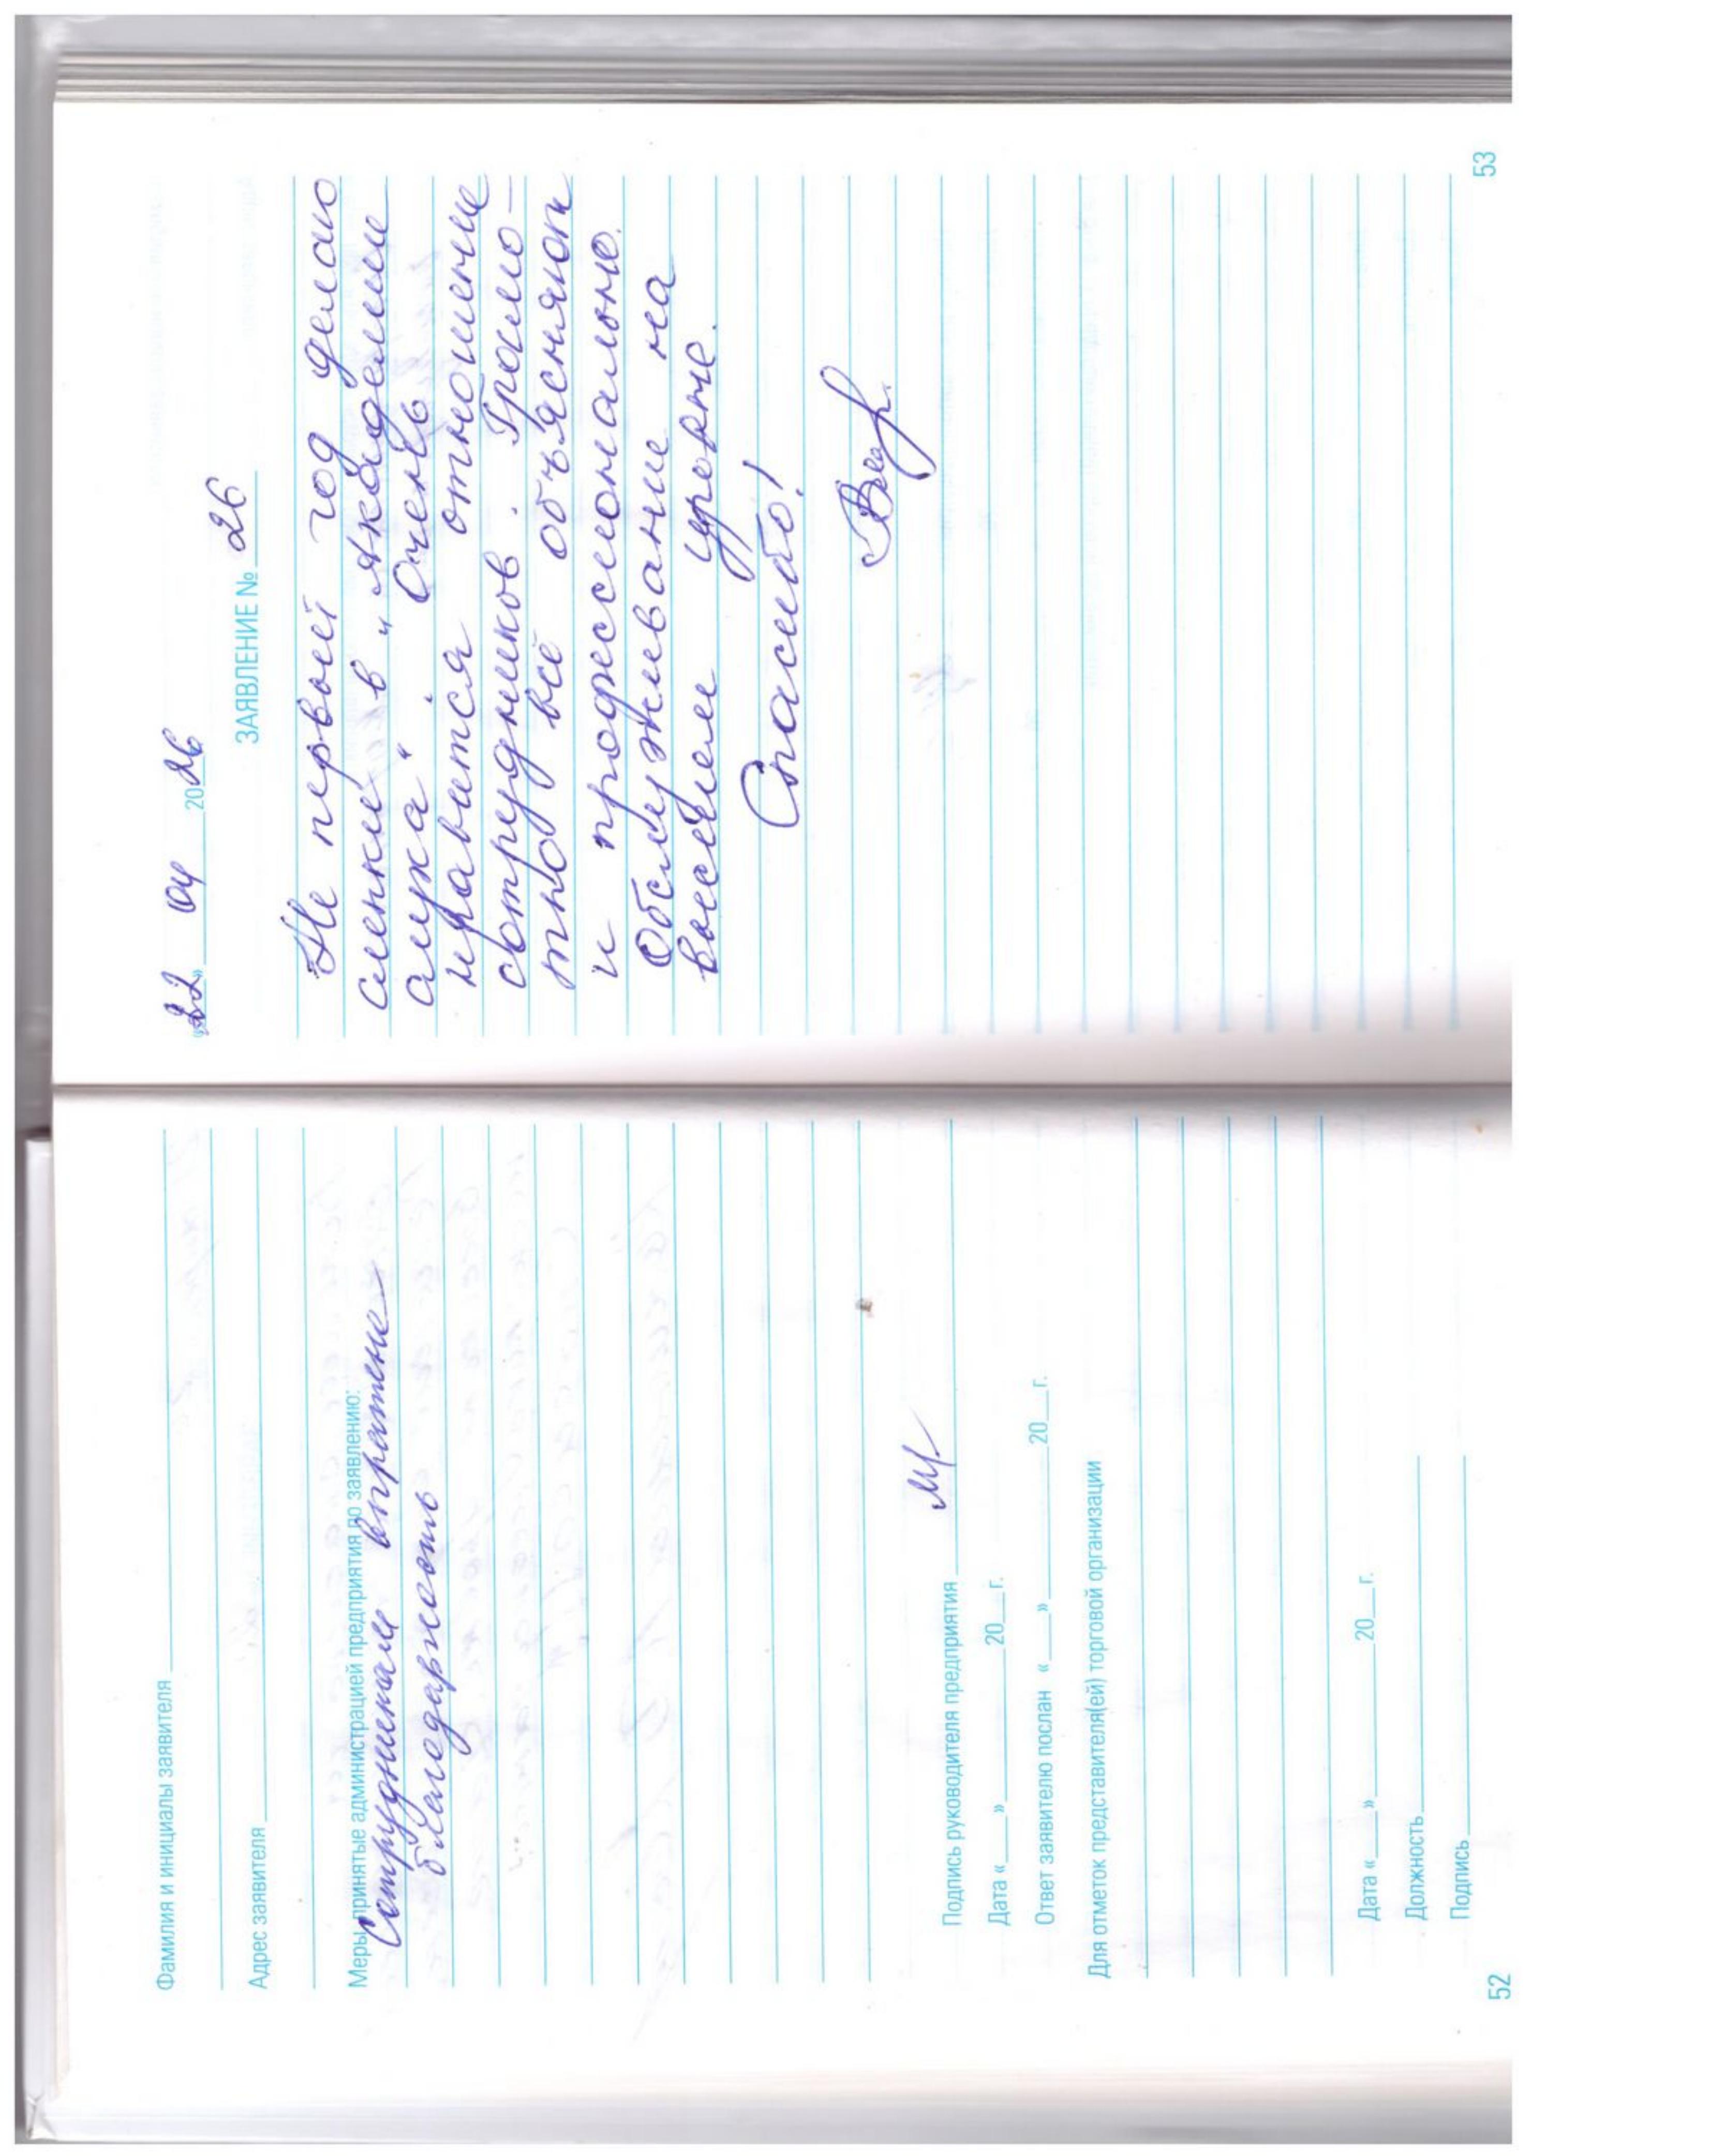 Фамилия и инициалы заявителя
Адрес заявителя
Меры принятые администрацией предприятия по заявлению:
Сотрудникам
благодарность
Подпись руководителя предприятия
Дата «___» ______ 20__г.
Ответ заявителю послан «___» ______ 20__г.
Для отметок представителя(ей) торговой организации
Дата «___» ______ 20__г.
Должность
Подпись
52
«22» 04 2026
ЗАЯВЛЕНИЕ № 26
Не первый год делаю
слепки в „Академии
слуха“. Очень
нравится отношение
сотрудников. Грамо-
тно всё объясняют
и профессионально.
Обслуживание на
высшем уровне.
Спасибо!
53